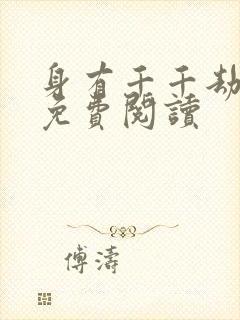 身有千千劫
免費閱讀
傅濤